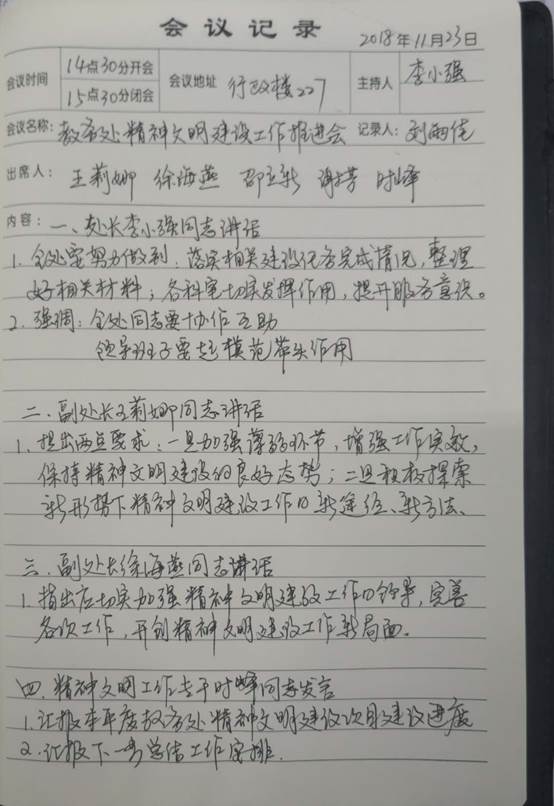 会议记录
2018年11月23日
会议时间 14点30分开会 15点30分闭会 会议地址 行政楼227 主持人 李小强
会议名称: 教务处精神文明建设工作推进会 记录人: 刘雨佳
出席人: 王莉娜 徐海燕 邵立新 谢芳 时峰
内容: 一、处长李小强同志讲话
1. 全处要努力做到：落实相关建设任务完成情况，整理
好相关材料；各科室切实发挥作用，提升服务意识。
2. 强调：全处同志要协作互助
领导班子要起模范带头作用
二、副处长王莉娜同志讲话
1. 提出两点要求：一是加强薄弱环节，增强工作实效，
保持精神文明建设的良好态势；二是积极探索
新形势下精神文明建设工作的新途径、新方法、
三、副处长徐海燕同志讲话
1. 指出应切实加强精神文明建设工作的领导，完善
各项工作，开创精神文明建设工作新局面.
四、精神文明工作专干时峰同志发言
1. 汇报本年度教务处精神文明建设项目建设进度
2. 汇报下一步总结工作安排.